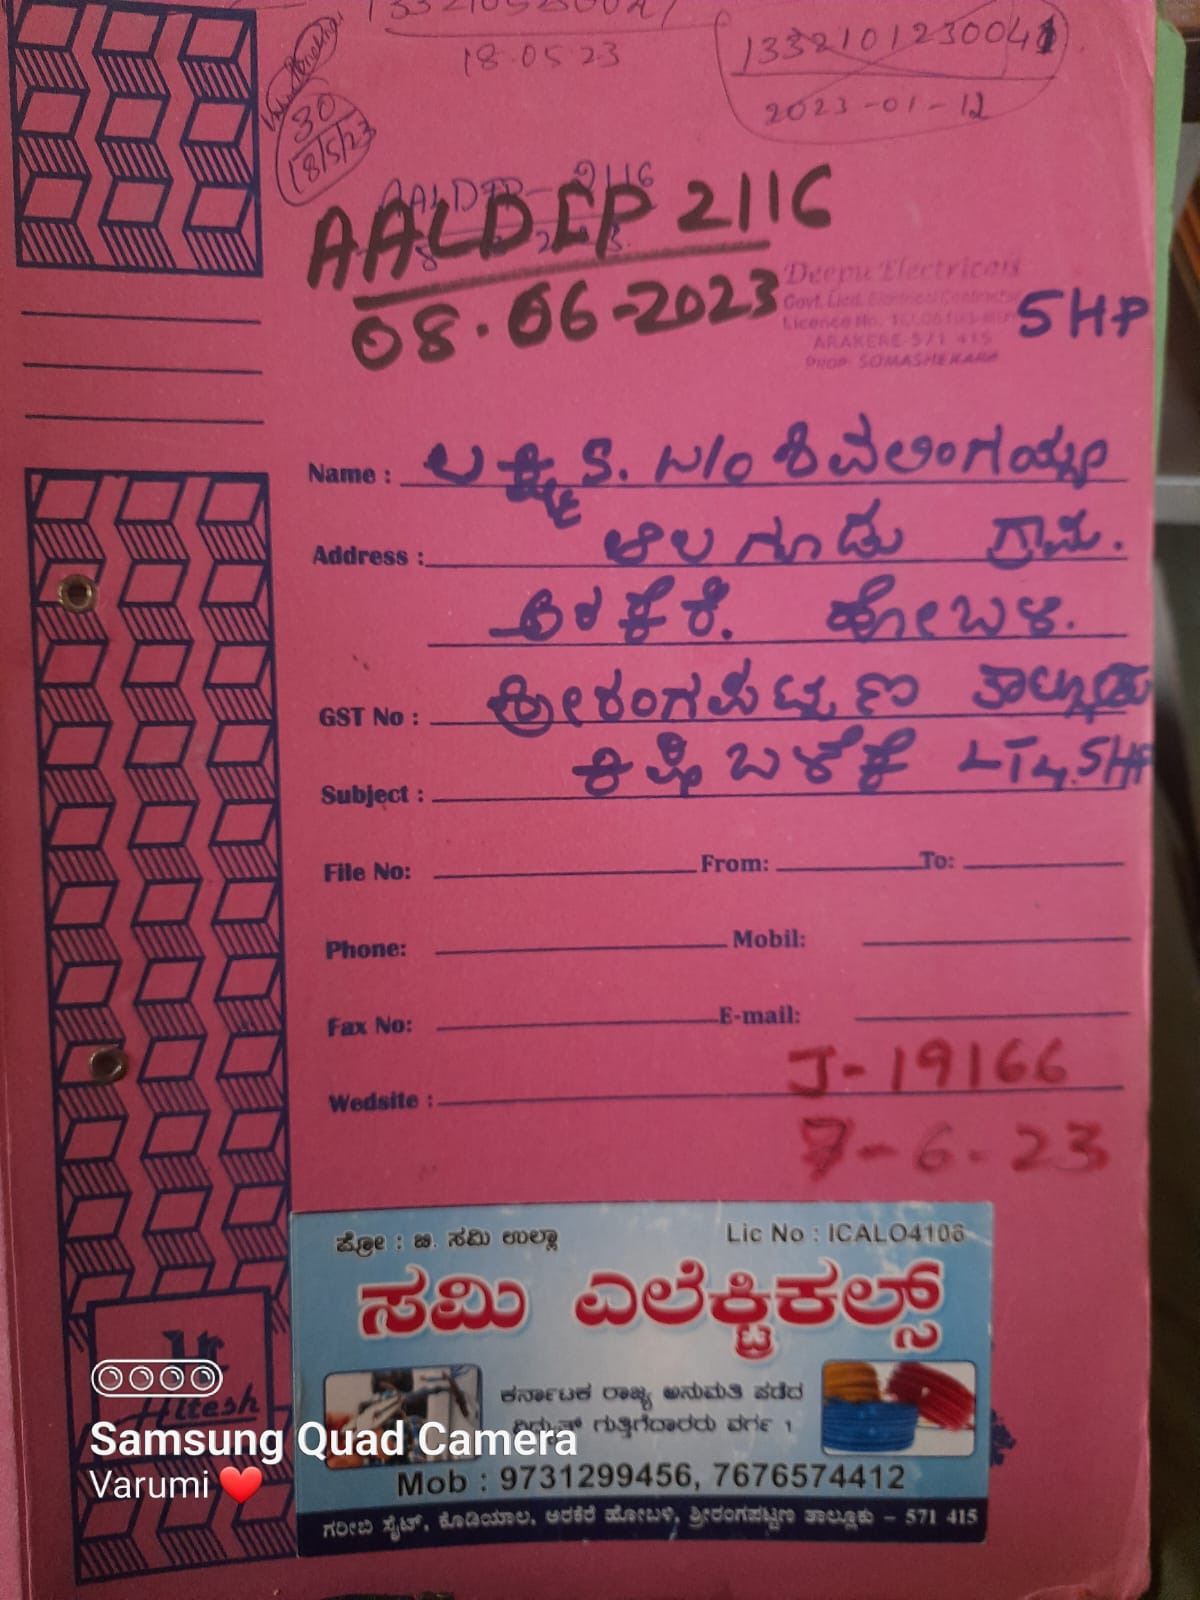 18.05.23
1332101230041
2023-01-12
30
18/5/23
AALDEP-2116
AALDEP 2116
08.06-2023
Deepu Electricals
Govt. Licd. Electrical Contractor
Licence No.
ARAKERE-571 415
PROP: SOMASHEKARA
5HP
Name : ಲಕ್ಷ್ಮಿ S. W/O ಶಿವಲಿಂಗಯ್ಯ
Address : ಆಲಗೂಡು ಗ್ರಾಮ.
ಅರಕೆರೆ. ಹೋಬಳಿ.
GST No : ಶ್ರೀರಂಗಪಟ್ಟಣ ತಾಲ್ಲೂಕು
Subject : ಕೃಷಿ ಬಳಕೆ LT4, 5HP
File No: From: To:
Phone: Mobil:
Fax No: E-mail:
J-19166
Wedsite :
7-6-23
ಪ್ರೋ : ಜಿ. ಸಮಿ ಉಲ್ಲಾ Lic No : ICALO4106
ಸಮಿ ಎಲೆಕ್ಟ್ರಿಕಲ್ಸ್
ಕರ್ನಾಟಕ ರಾಜ್ಯ ಅನುಮತಿ ಪಡೆದ
ವಿದ್ಯುತ್ ಗುತ್ತಿಗೆದಾರರು ವರ್ಗ 1
Mob : 9731299456, 7676574412
ಗರೀಬಿ ಸೈಟ್, ಕೊಡಿಯಾಲ, ಅರಕೆರೆ ಹೋಬಳಿ, ಶ್ರೀರಂಗಪಟ್ಟಣ ತಾಲ್ಲೂಕು - 571 415
Hitesh
Samsung Quad Camera
Varumi ❤️